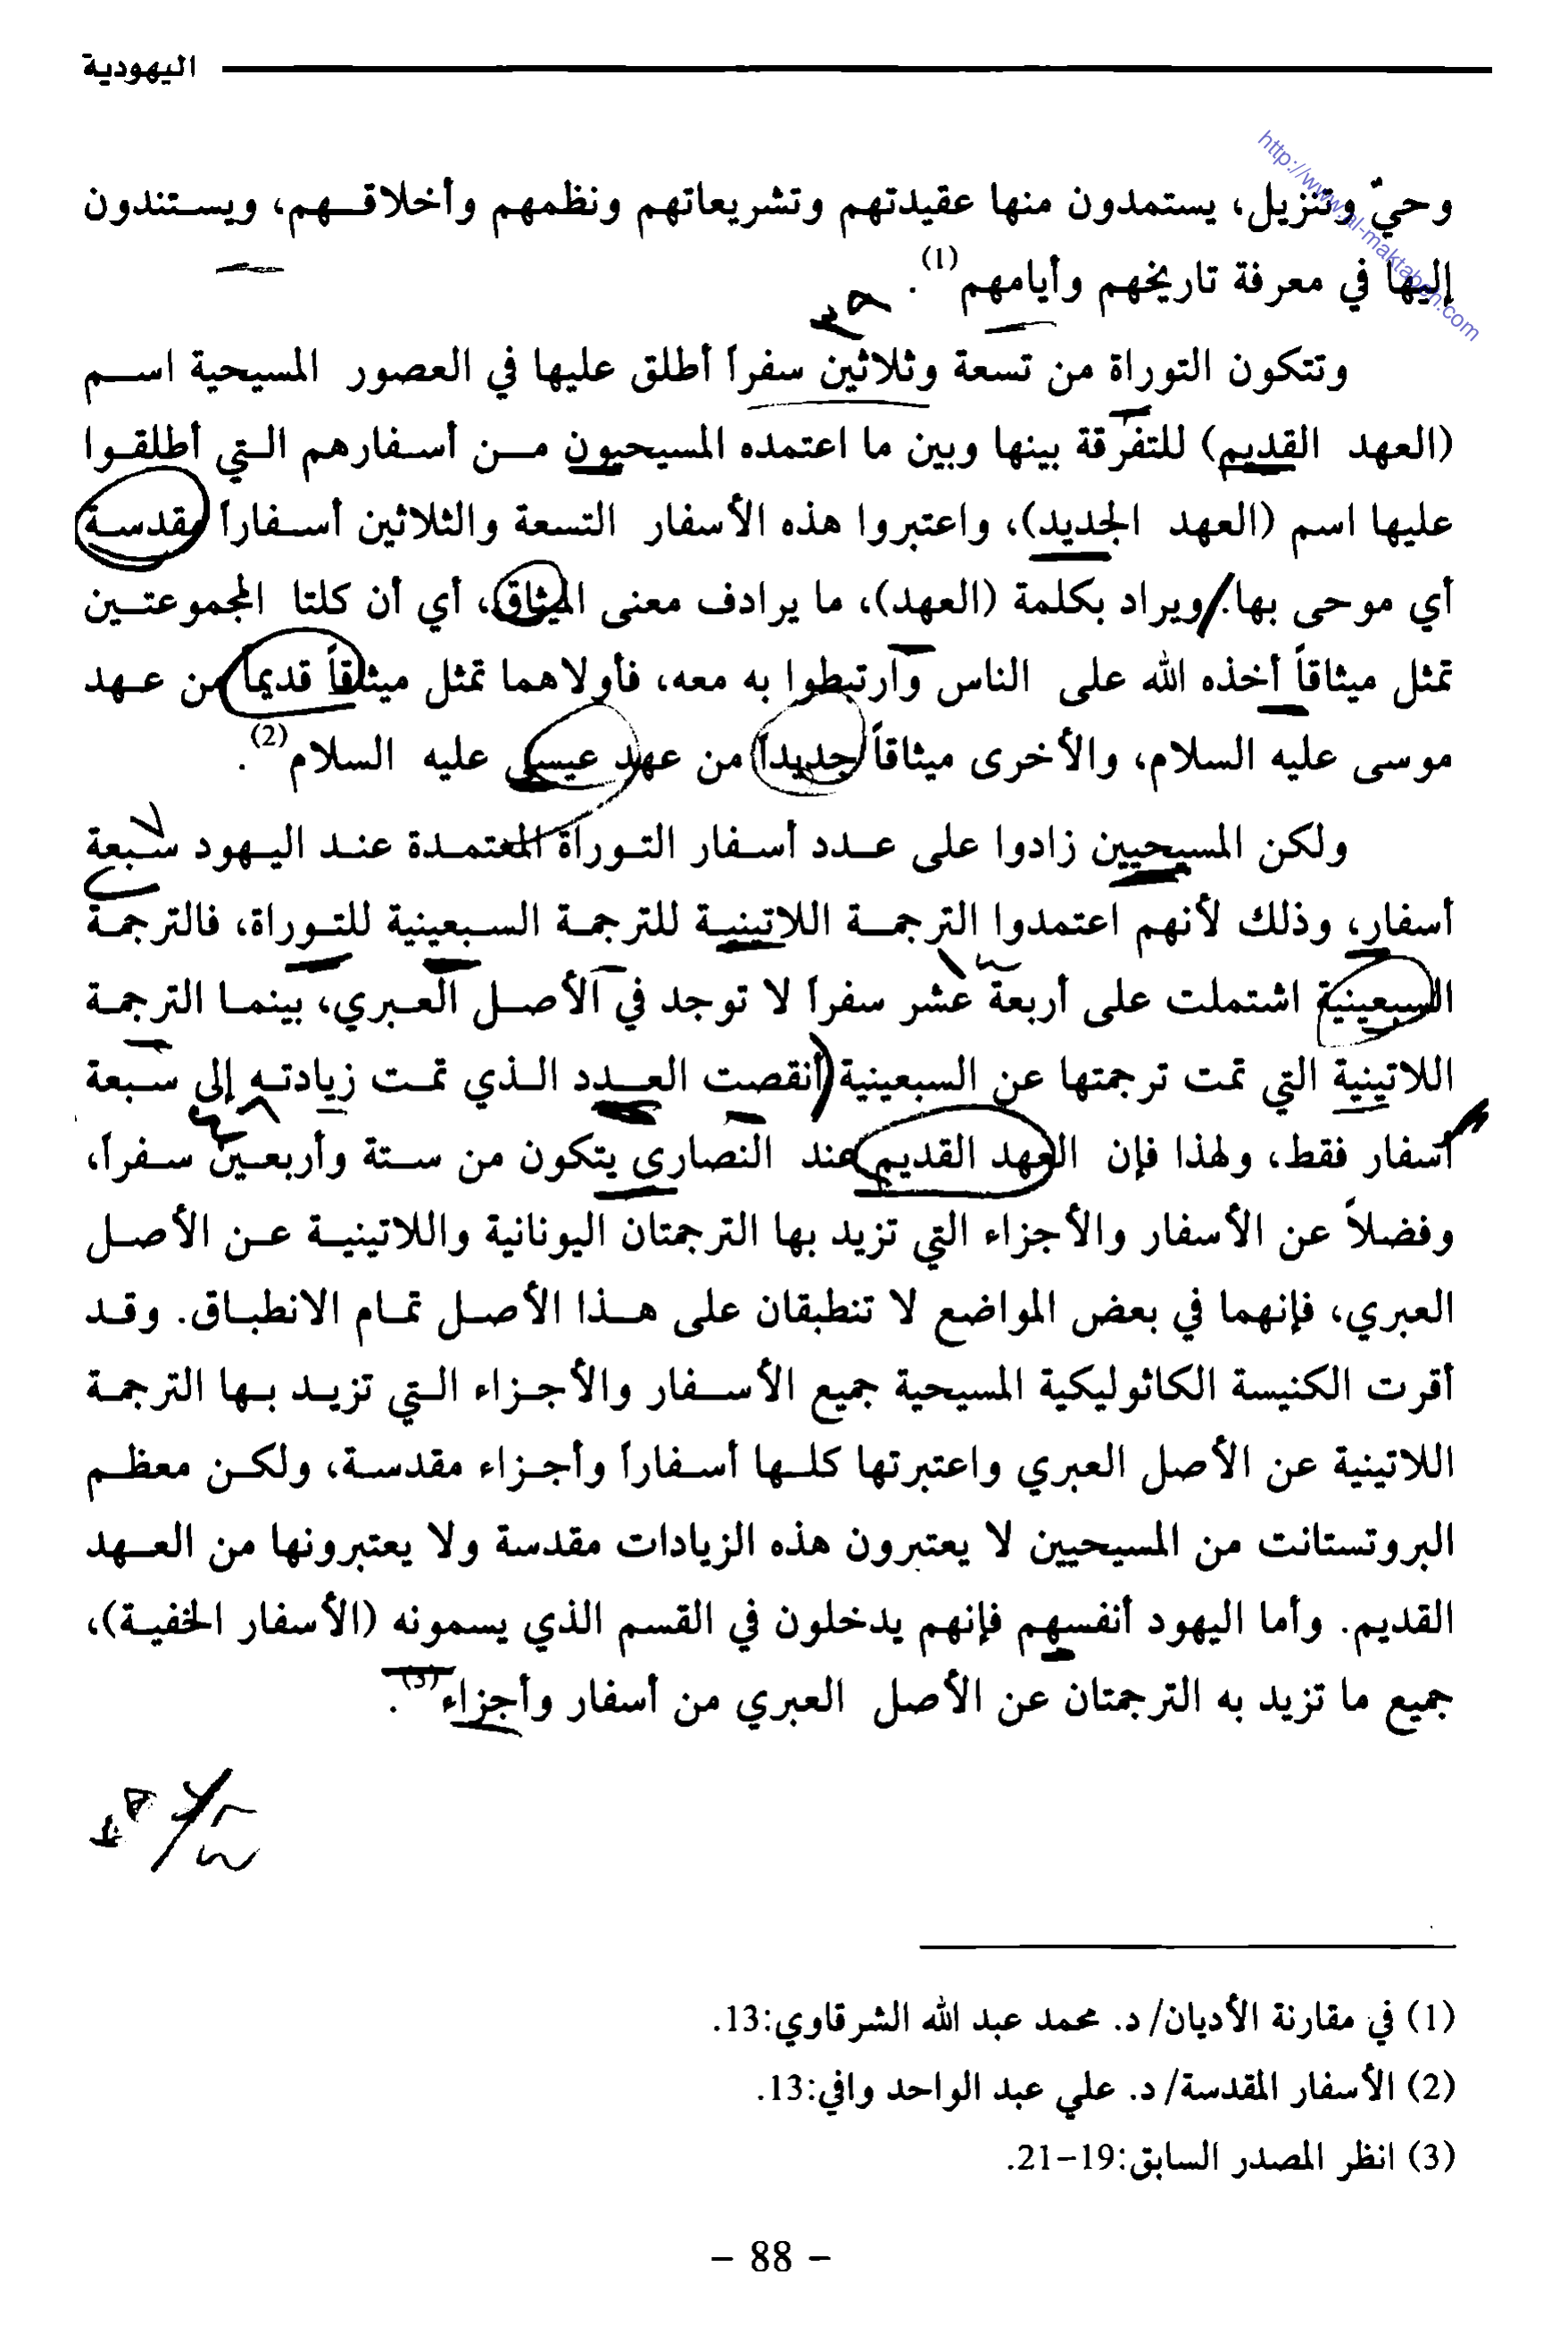 اليهودية
http://www.al-maktabeh.com
وحيّ وتنزيل، يستمدون منها عقيدتهم وتشريعاتهم ونظمهم وأخلاقهم، ويستندون
إليها في معرفة تاريخهم وأيامهم(1).
وتتكون التوراة من تسعة وثلاثين سفراً أطلق عليها في العصور المسيحية اسم
(العهد القديم) للتفرقة بينها وبين ما اعتمده المسيحيون من أسفارهم التي أطلقوا
عليها اسم (العهد الجديد)، واعتبروا هذه الأسفار التسعة والثلاثين أسفاراً مقدسة
أي موحى بها. ويراد بكلمة (العهد)، ما يرادف معنى الميثاق، أي أن كلتا المجموعتين
تمثل ميثاقاً أخذه الله على الناس وارتبطوا به معه، فأولاهما تمثل ميثاقاً قديماً من عهد
موسى عليه السلام، والأخرى ميثاقاً جديداً من عهد عيسى عليه السلام(2).
ولكن المسيحيين زادوا على عدد أسفار التوراة المعتمدة عند اليهود سبعة
أسفار، وذلك لأنهم اعتمدوا الترجمة اللاتينية للترجمة السبعينية للتوراة، فالترجمة
السبعينية اشتملت على أربعة عشر سفراً لا توجد في الأصل العبري، بينما الترجمة
اللاتينية التي تمت ترجمتها عن السبعينية أنقصت العدد الذي تمت زيادته إلى سبعة
أسفار فقط، ولهذا فإن العهد القديم عند النصارى يتكون من ستة وأربعين سفراً،
وفضلاً عن الأسفار والأجزاء التي تزيد بها الترجمتان اليونانية واللاتينية عن الأصل
العبري، فإنهما في بعض المواضع لا تنطبقان على هذا الأصل تمام الانطباق. وقد
أقرت الكنيسة الكاثوليكية المسيحية جميع الأسفار والأجزاء التي تزيد بها الترجمة
اللاتينية عن الأصل العبري واعتبرتها كلها أسفاراً وأجزاء مقدسة، ولكن معظم
البروتستانت من المسيحيين لا يعتبرون هذه الزيادات مقدسة ولا يعتبرونها من العهد
القديم. وأما اليهود أنفسهم فإنهم يدخلون في القسم الذي يسمونه (الأسفار الخفية)،
جميع ما تزيد به الترجمتان عن الأصل العبري من أسفار وأجزاء(3).
(1) في مقارنة الأديان/ د. محمد عبد الله الشرقاوي:13.
(2) الأسفار المقدسة/ د. علي عبد الواحد وافي:13.
(3) انظر المصدر السابق:19-21.
- 88 -